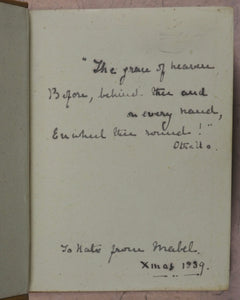 "The grace of heaven
Before, behind thee and
on every hand,
Enwheel thee round!"
Othello.
To Kate from Mabel.
Xmas 1939.